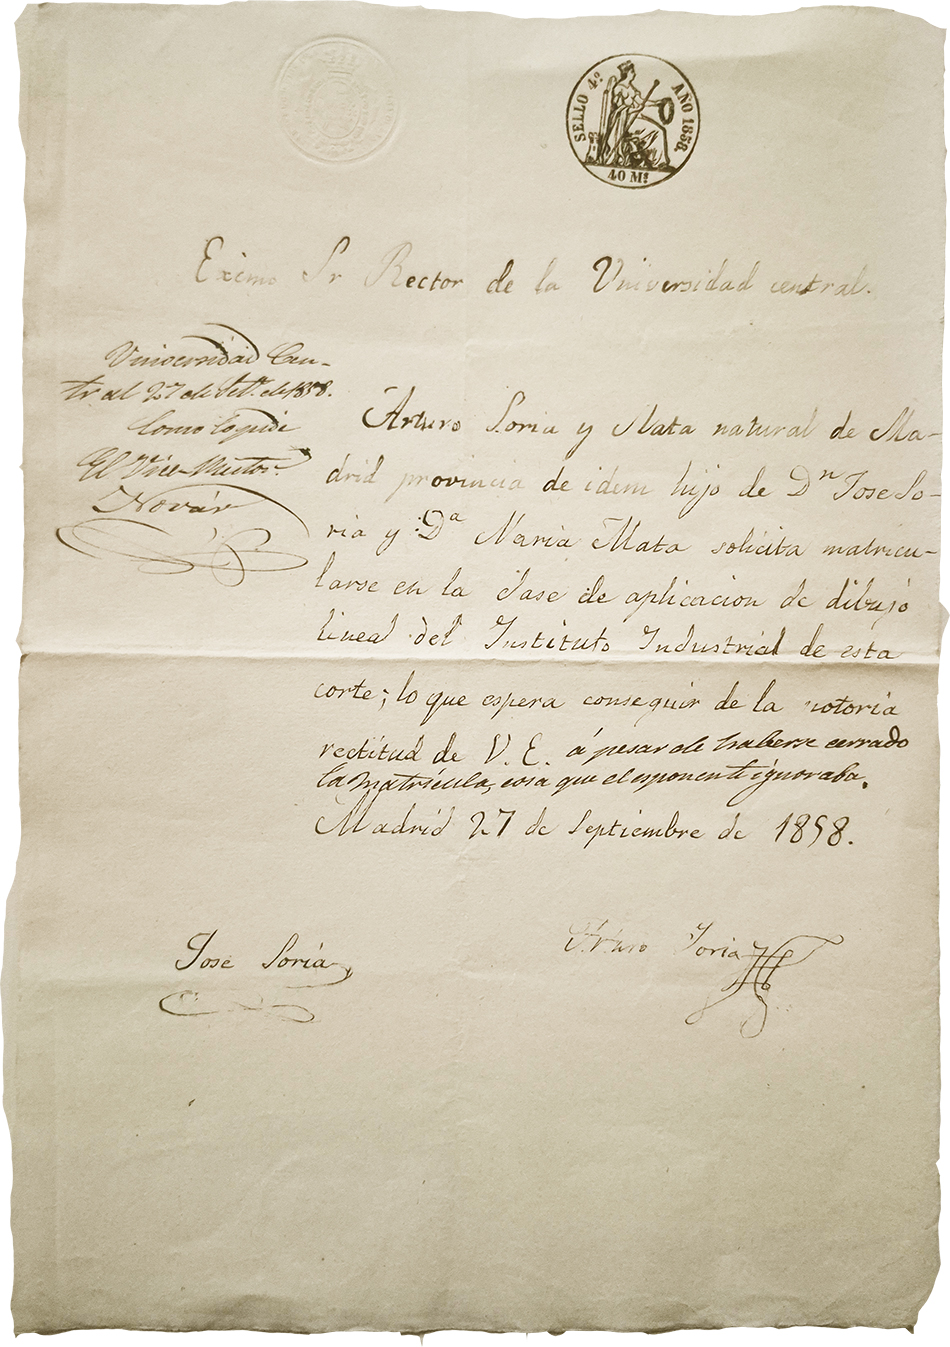 SELLO 4º AÑO 1858.
40 Mˢ
Exĩmo Sr Rector de la Universidad central.
Universidad Cen-
tral 27 de Setᵉ. de 1858.
Como lo pide
El Vice-Rector.
Novár
Arturo Soria y Mata natural de Ma-
drid provincia de idem hijo de Dⁿ Jose So-
ria y Dᵃ Maria Mata solicita matricu-
larse en la clase de aplicacion de dibujo
lineal del Instituto Industrial de esta
corte; lo que espera conseguir de la notoria
rectitud de V. E. á pesar de haberse cerrado
la matrícula, cosa que el esponente ignoraba.
Madrid 27 de Septiembre de 1858.
José Soria
Arturo Soria